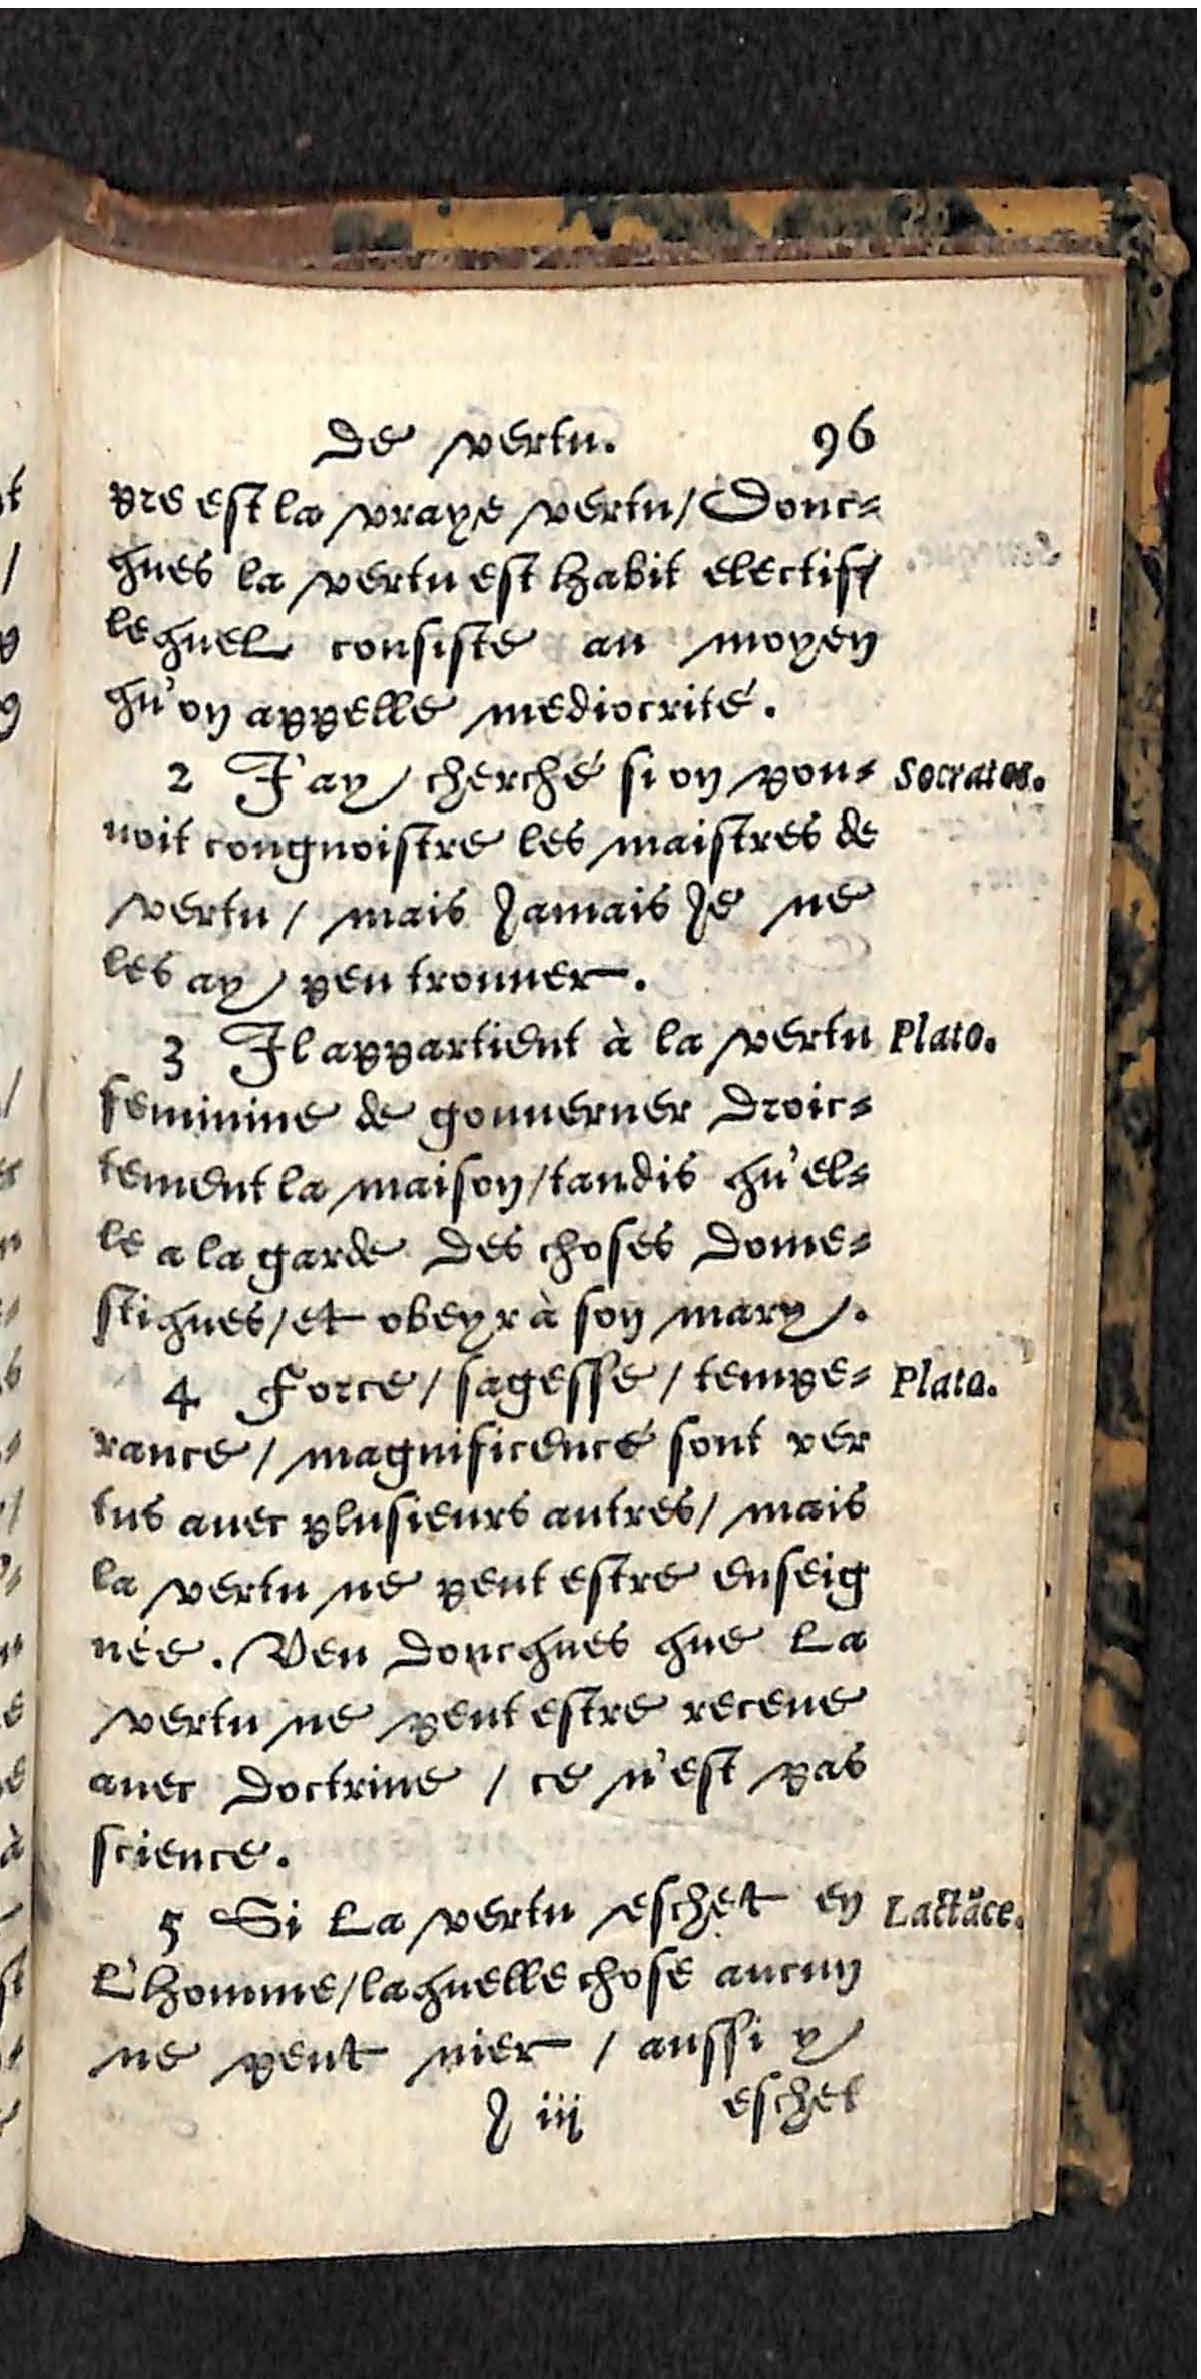 De vertu. 96
pre est la vraye vertu/ Donc=
ques la vertu est habit electif/
lequel consiste au moyen
qu'on appelle mediocrité.
2 J'ay cherché si on pou= Socrates.
uoit congnoistre les maistres de
vertu/ mais jamais je ne
les ay peu trouuer.
3 Il appartient à la vertu Plato.
feminine de gouuerner droic=
tement la maison/tandis qu'el=
le a la garde des choses dome=
stiques/et obeyr à son mary.
4 Force/ sagesse/ tempe= Plato.
rance/ magnificence sont ver
tus auec plusieurs autres/ mais
la vertu ne peut estre enseig
née. Veu doncques que la
vertu ne peut estre receue
auec doctrine / ce n'est pas
science.
5 Si la vertu eschet en Lactāce.
l'homme/laquelle chose aucun
ne peut nier / aussi y
J iij eschet